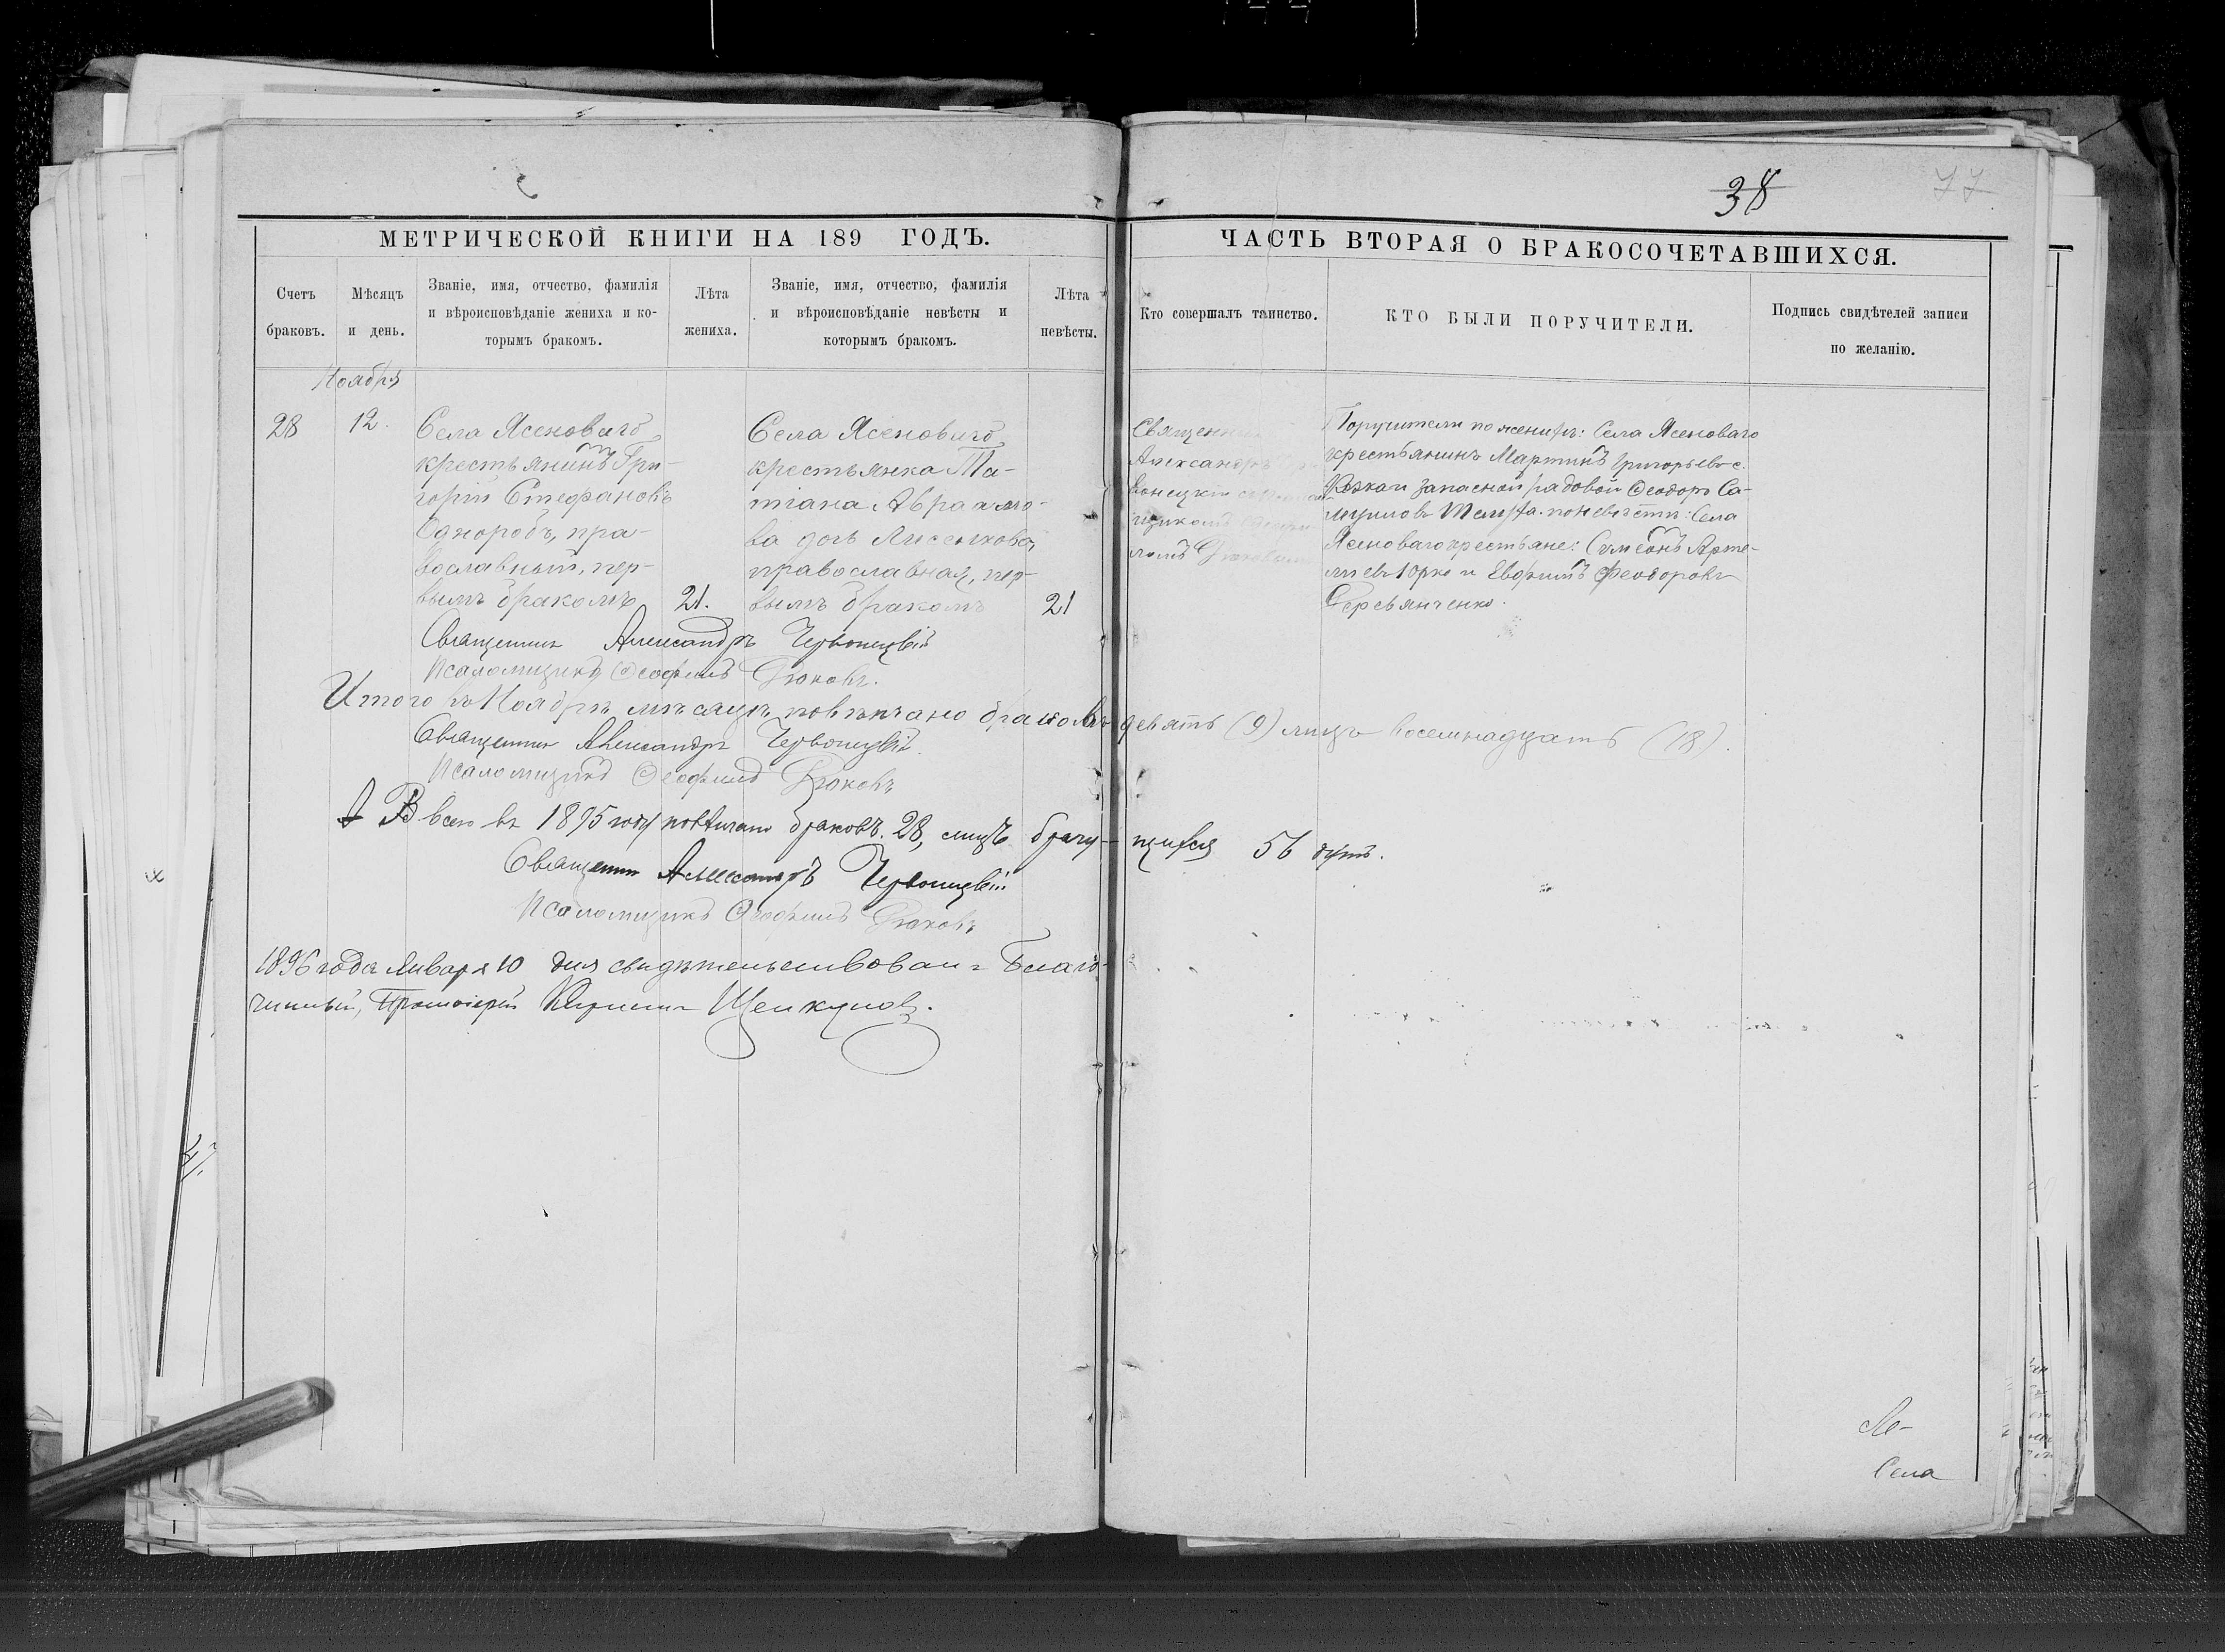 38
77
МЕТРИЧЕСКОЙ КНИГИ НА 189 ГОДЪ.
Счетъ браковъ.
Мѣсяцъ и день.
Званіе, имя, отчество, фамилія
и вѣроисповѣданіе жениха и ко-
торымъ бракомъ.
Лѣта жениха.
Званіе, имя, отчество, фамилія
и вѣроисповѣданіе невѣсты и
которымъ бракомъ.
Лѣта невѣсты.
ЧАСТЬ ВТОРАЯ О БРАКОСОЧЕТАВШИХСЯ.
Кто совершалъ таинство.
КТО БЫЛИ ПОРУЧИТЕЛИ.
Подпись свидѣтелей записи
по желанію.
Ноября
28
12.
Села Ясеноваго
крестьянинъ Гри-
горій Стефановъ
Одноробъ, пра-
вославный, пер-
вымъ бракомъ
21.
Села Ясеноваго
крестьянка Та-
тіана Авраамо-
ва дочь Лисенкова,
православная, пер-
вымъ бракомъ
21
Священник
Александръ
вонецкій
щикомъ
ломъ
Поручители по женихѣ: Села Ясеноваго
крестьянинъ Мартинъ Григорьевъ
и запасной рядовой Ѳеодоръ Са-
муиловъ по невѣстѣ: Села
Ясеноваго крестьяне: Сѵмеонъ Арте-
міевъ Юрко и Евфимъ Феодоровъ
Деревянченко.
Священник Александръ Червонецкій
Псаломщикъ Ѳеофилъ Дюковъ.
Итого въ Ноябрѣ мѣсяцѣ повѣнчано браковъ девять (9) лицъ восемнадцать (18).
Священник Александръ Червонецкій
Псаломщикъ Ѳеофилъ Дюковъ
А Всего въ 1895 году повѣнчано браковъ 28, лицъ брачу- щихся 56 душъ.
Священник Александръ Червонецкій
Псаломщикъ Ѳеофилъ Дюковъ
1896 года Января 10 дня свидѣтельствовалъ Благо-
чинный, Протоіерей Кириллъ
Села